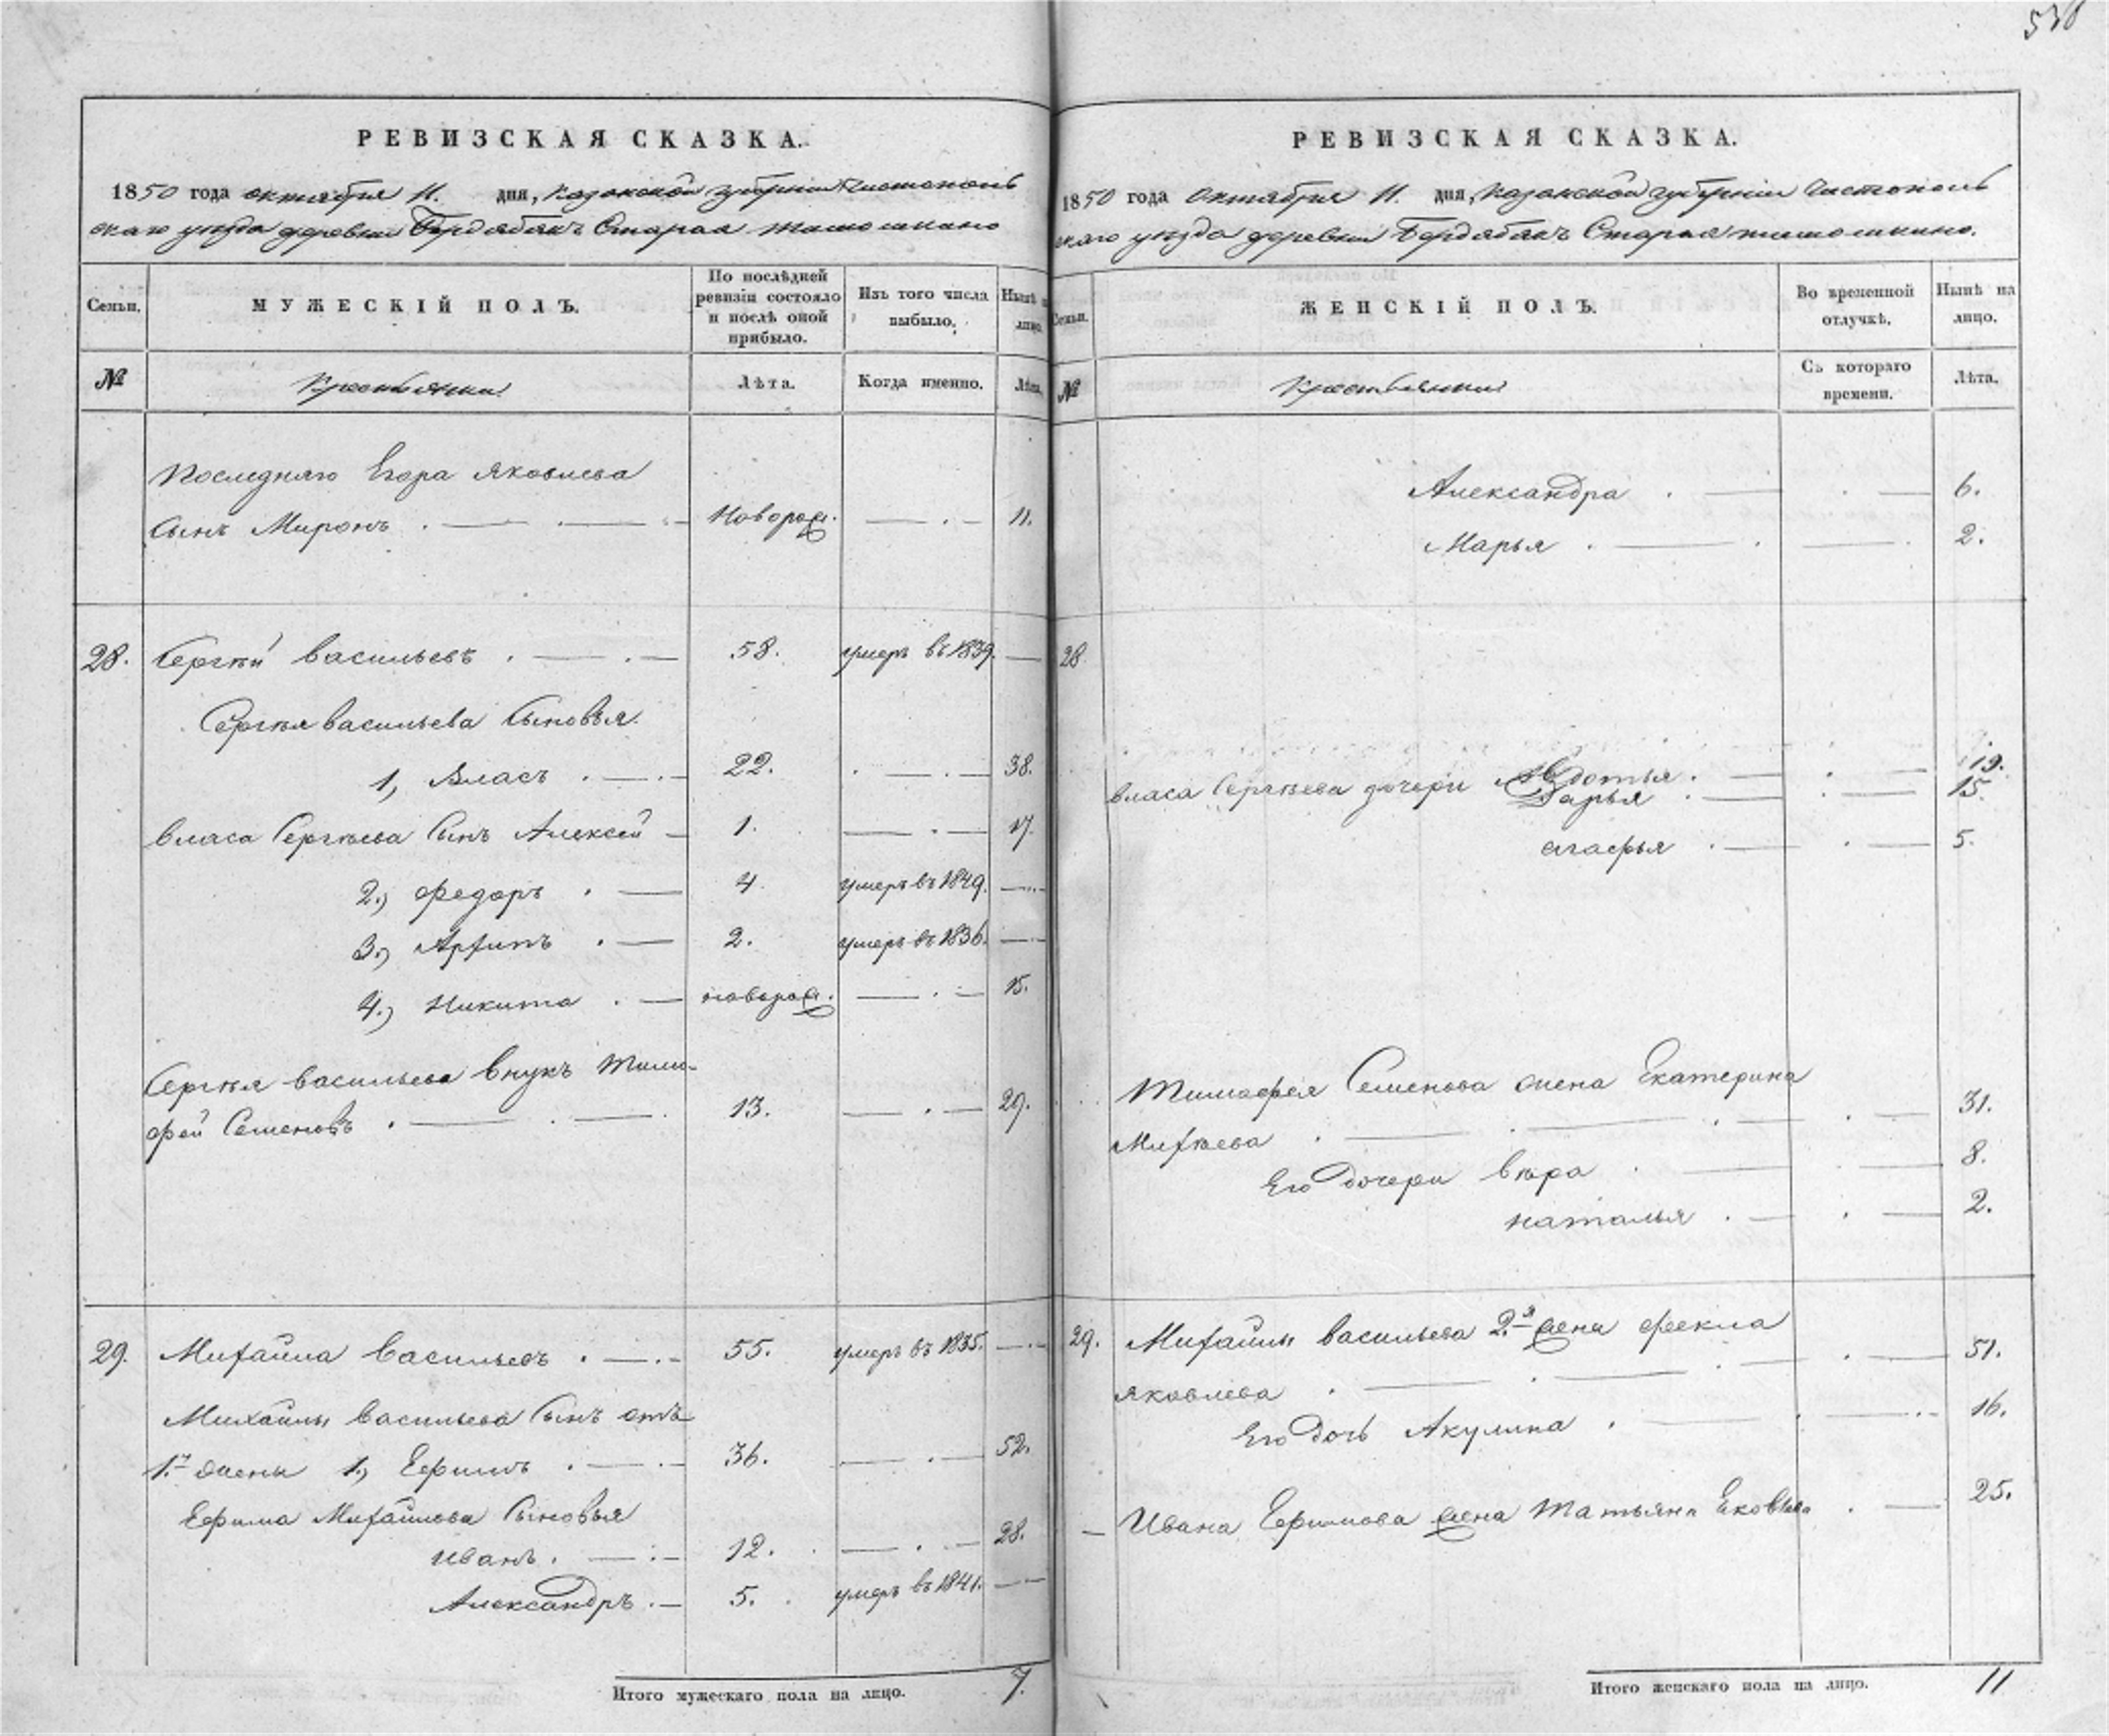 538
РЕВИЗСКАЯ СКАЗКА.
1850 года октября 11. дня, Казанской губернии Чистополь
скаго уезда деревни Бердябякъ Старая тимошкино
Семьи.
МУЖЕСКІЙ ПОЛЪ.
По послѣдней ревизіи состояло и послѣ оной прибыло.
Изъ того числа выбыло.
Нынѣ на лицо.
№
Крестьяни
Лѣта.
Когда именно.
Лѣта.
Последняго Егора Яковлева
сынъ Миронъ . новорож. 11.
28. Сергѣй васильевъ . 58. умеръ въ 1839.
Сергѣя васильева сыновья.
1, Власъ . 22. 38.
власа Сергѣева сынъ Алексей 1. 17.
2.) Федоръ . 4. умеръ въ 1849.
3.) Архипъ . 2. умеръ въ 1836.
4.) Никита . новорож. 15.
Сергѣя васильева внукъ Тимо-
фей Семеновъ . 13. 29.
29. Михайла васильевъ . 55. умеръ въ 1835.
Михайлы васильева сынъ отъ
1.й жены 1.) Ефимъ . 36. 52.
Ефима Михайлова сыновья
иванъ . 12. 28.
Александръ . 5. умеръ въ 1841.
Итого мужескаго пола на лицо. 7.
РЕВИЗСКАЯ СКАЗКА.
1850 года октября 11. дня, Казанской губернии Чистополь
скаго уезда деревни Бердябякъ Старая тимошкино.
Семьи.
ЖЕНСКІЙ ПОЛЪ.
Во временной отлучкѣ.
Нынѣ на лицо.
№
Крестьянки
Съ котораго времени.
Лѣта.
Александра . 6.
Марья . 2.
28
власа Сергѣева дочери Авдотья . 19.
Дарья . 15.
агафья . 5.
Тимофея Семенова жена Екатерина
Михѣева . 31.
Его дочери вѣра . 8.
наталья . 2.
29. Михайлы васильева 2.я жена фекла
яковлева . 51.
Его дочь Акулина . 16.
Ивана Ефимова жена Татьяна Яковлева . 25.
Итого женскаго пола на лицо. 11